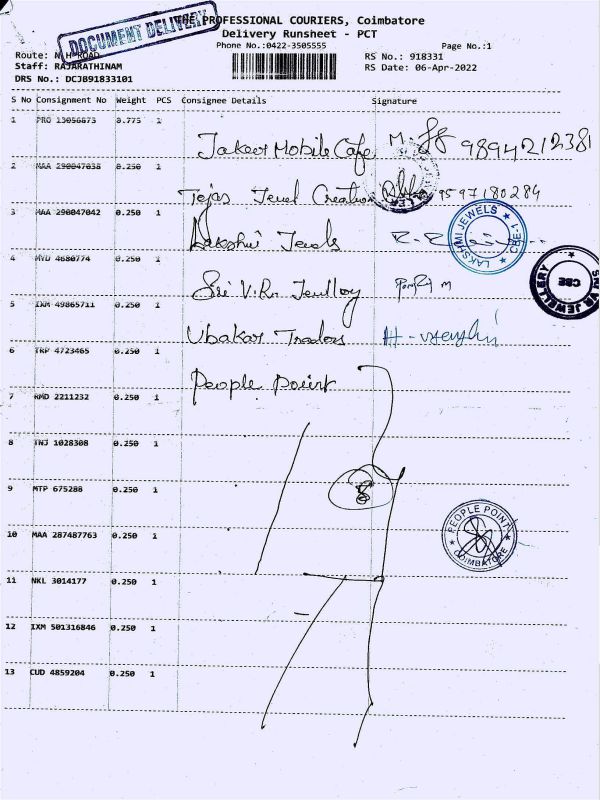 THE PROFESSIONAL COURIERS, Coimbatore
DOCUMENT DELIVERY
Delivery Runsheet - PCT
Phone No.:0422-3505555 Page No.:1
Route: N H ROAD RS No.: 918331
Staff: RAJARATHINAM RS Date: 06-Apr-2022
DRS No.: DCJB91833101
S No Consignment No Weight PCS Consignee Details Signature
1 PRO 13056873 0.775 1
Jakeer Mobile Cafe M. 9894212381
2 MAA 290847038 0.250 1
Tejas Jewel Creation 9597180284
3 MAA 290847042 0.250 1
Lakshmi Jewels
LAKSHMI JEWELS CBE-1
4 MYD 4680774 0.250 1
Sri V.R. Jewllery
SRI VR JEWELLERY CBE
5 IXM 49865711 0.250 1
Ubakar Traders
6 TRP 4723465 0.250 1
People Point
7 RMD 2211232 0.250 1
8 TNJ 1028308 0.250 1
9 MTP 675288 0.250 1
8
PEOPLE POINT COIMBATORE
10 MAA 287487763 0.250 1
11 NKL 3014177 0.250 1
12 IXM 501316846 0.250 1
13 CUD 4859204 0.250 1